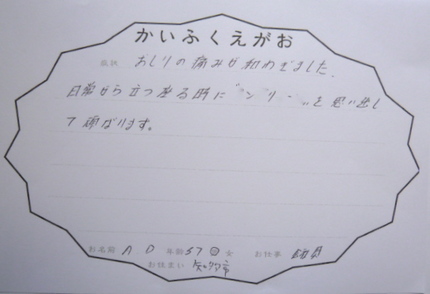 かいふくえがお
症状 おしりの痛みが和わぎました。
日常から立つ座る時に を思い出し
て頑ばります。
お名前 A D 年齢 57 男 女 お仕事
お住まい